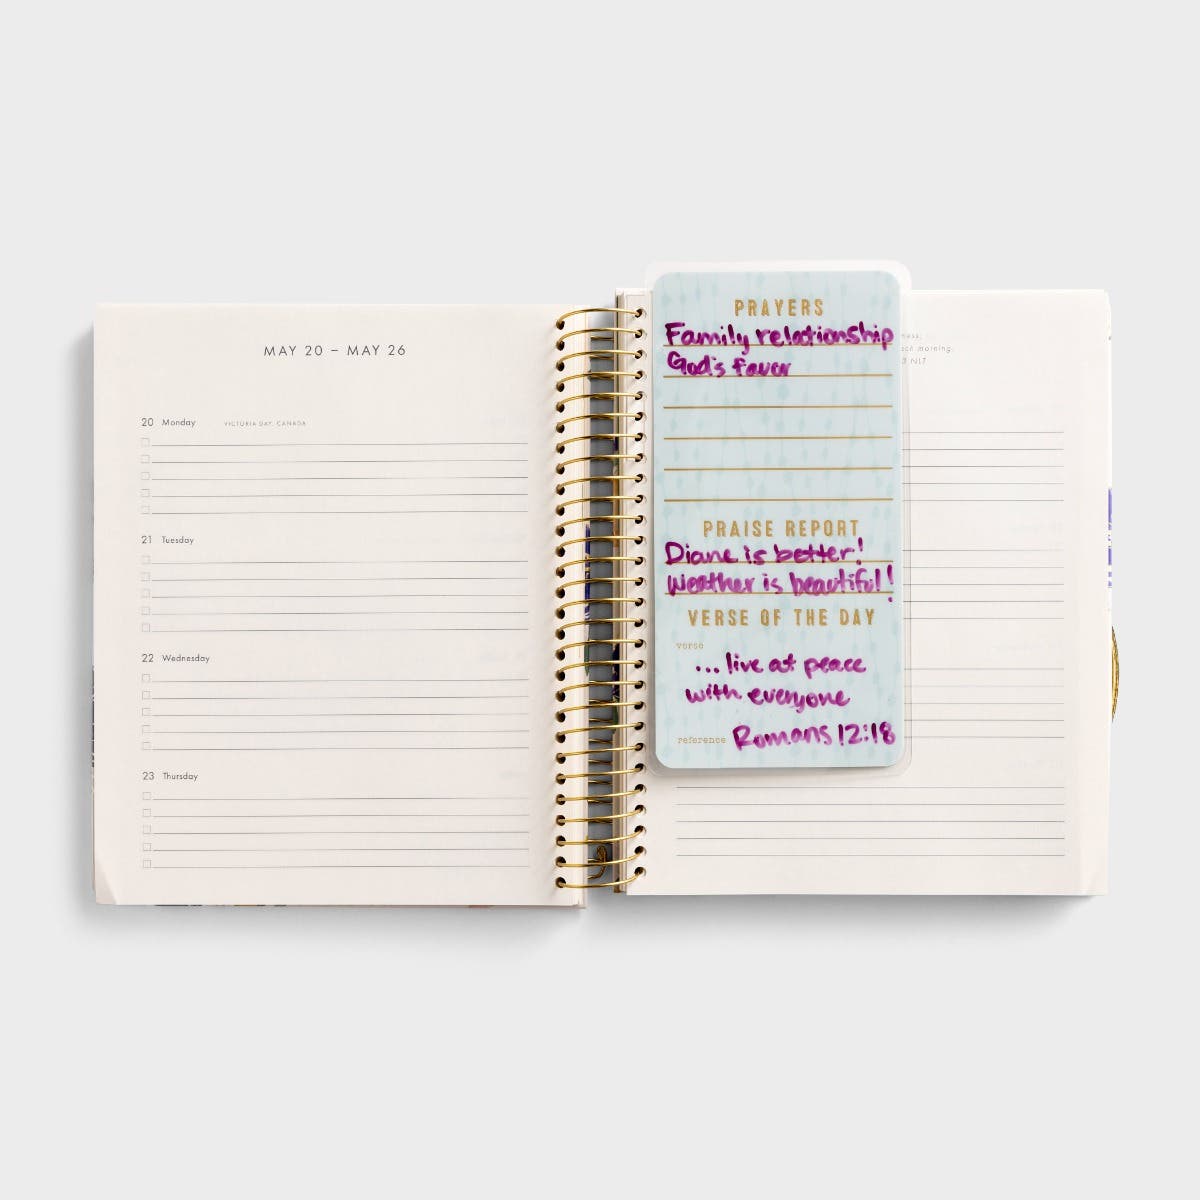 MAY 20 – MAY 26
20 Monday VICTORIA DAY, CANADA
21 Tuesday
22 Wednesday
23 Thursday
PRAYERS
Family relationship
God's favor
PRAISE REPORT
Diane is better!
Weather is beautiful!
VERSE OF THE DAY
verse
...live at peace
with everyone
reference Romans 12:18
morning.
NLT